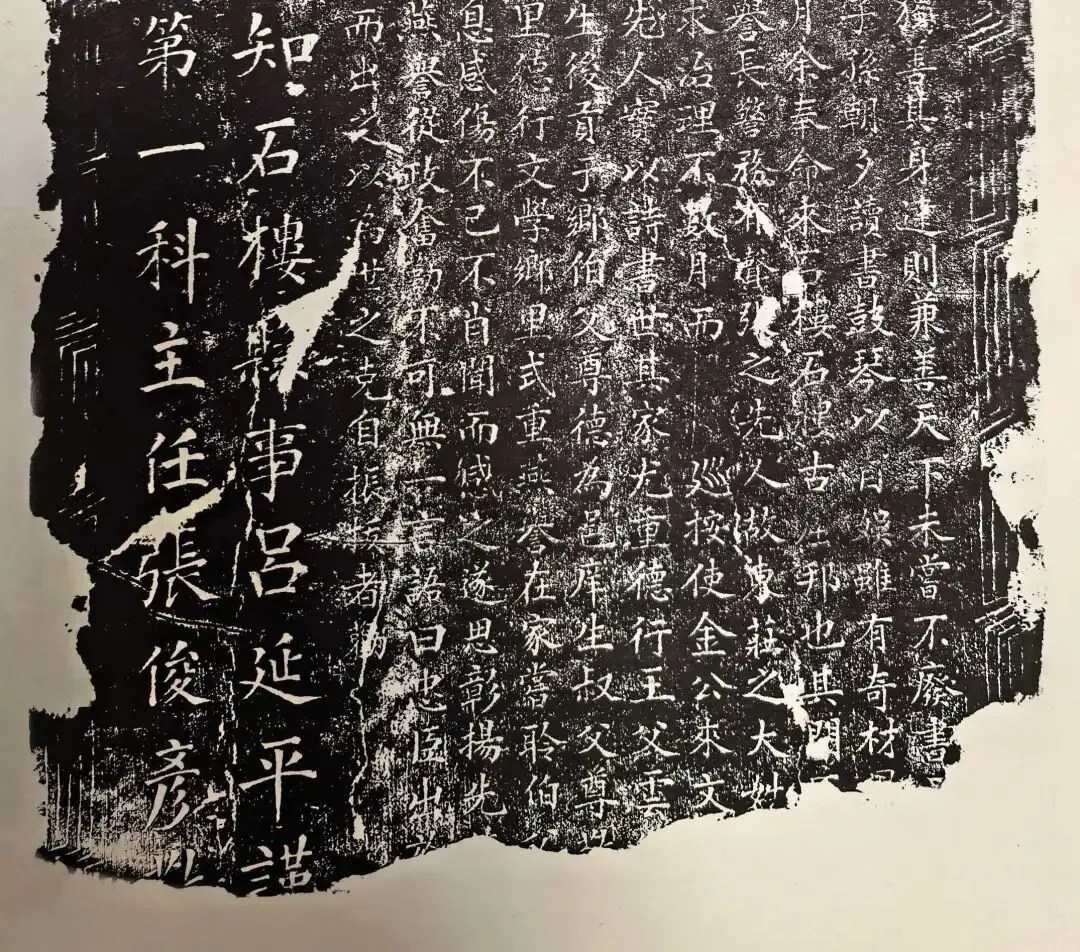 善其身達則兼善天下未嘗不廢書
孫朝夕讀書鼓琴以自娛雖有奇材
月余奉命來石樓石樓古 邦也其門
譽長警務有聲強之先人㳟東莊之大姓
求治理不數月而 巡按使金公來文
先人寶以詩書世其家尤重德行王父雲
生後貢于鄉伯父尊德為邑庠生叔父尊
里德行文學鄉里式重燕譽在家嘗聆伯
息感傷不已不肖聞而感之遂思彰揚先
燕譽從政奮勉不可無一言語曰忠臣出
而出之以為世之克自振拔者
知石樓縣事呂延平謹
第一科主任張俊彥